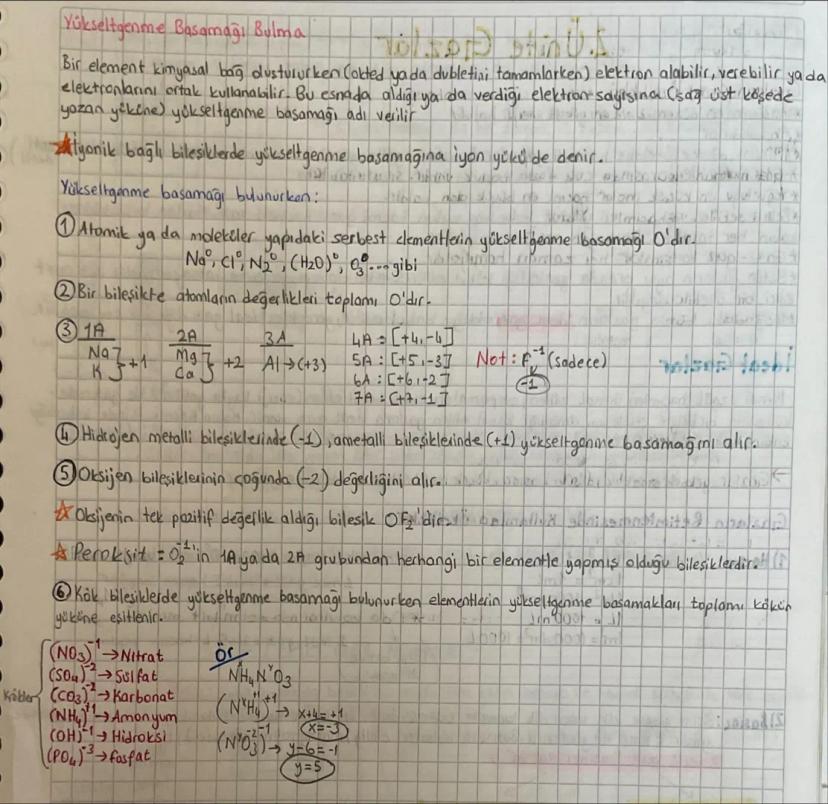 Yükseltgenme Basamağı Bulma
Bir element kimyasal bağ oluştururken (okted yada dubletini tamamlarken) elektron alabilir, verebilir yada
elektronlarını ortak kullanabilir. Bu esnada aldığı ya da verdiği elektron sayısına (sağ üst köşede
yazan yüküne) yükseltgenme basamağı adı verilir
☆İyonik bağlı bileşiklerde yükseltgenme basamağına iyon yükü de denir.
Yükseltgenme basamağı bulunurken:
① Atomik ya da moleküler yapıdaki serbest elementlerin yükseltgenme basamağı 0'dır.
Na⁰, Cl⁰, N₂⁰, (H2O)⁰, O₃⁰ ... gibi
② Bir bileşikte atomların değerlikleri toplamı 0'dır.
③ 1A 2A 3A 4A = [+4,-4]
Na Mg Al → (+3) 5A : [+5,-3] Not : F⁻¹ (sadece)
K } +1 Ca } +2 6A : [+6,-2] (-1)
7A = [+7,-1]
④ Hidrojen metalli bileşiklerinde (-1), ametalli bileşiklerinde (+1) yükseltgenme basamağını alır.
⑤ Oksijen bileşiklerinin çoğunda (-2) değerliğini alır.
☆ Oksijenin tek pozitif değerlik aldığı bileşik OF₂'dir.
☆ Peroksit = O₂⁻¹'in 1A yada 2A grubundan herhangi bir elementle yapmış olduğu bileşiklerdir.
⑥ Kök bileşiklerde yükseltgenme basamağı bulunurken elementlerin yükseltgenme basamakları toplamı kökün
yüküne eşitlenir.
Kökler
(NO₃)⁻¹ → Nitrat
(SO₄)⁻² → Sülfat
(CO₃)⁻² → Karbonat
(NH₄)⁺¹ → Amonyum
(OH)⁻¹ → Hidroksi
(PO₄)⁻³ → fosfat
Ör
NˣH₄NʸO₃
(NˣH₄⁺¹)⁺¹ → x+4=+1
x=-3
(NʸO₃⁻²)⁻¹ → y-6=-1
y=5
2. Ünite Gazlar
İdeal Gazlar